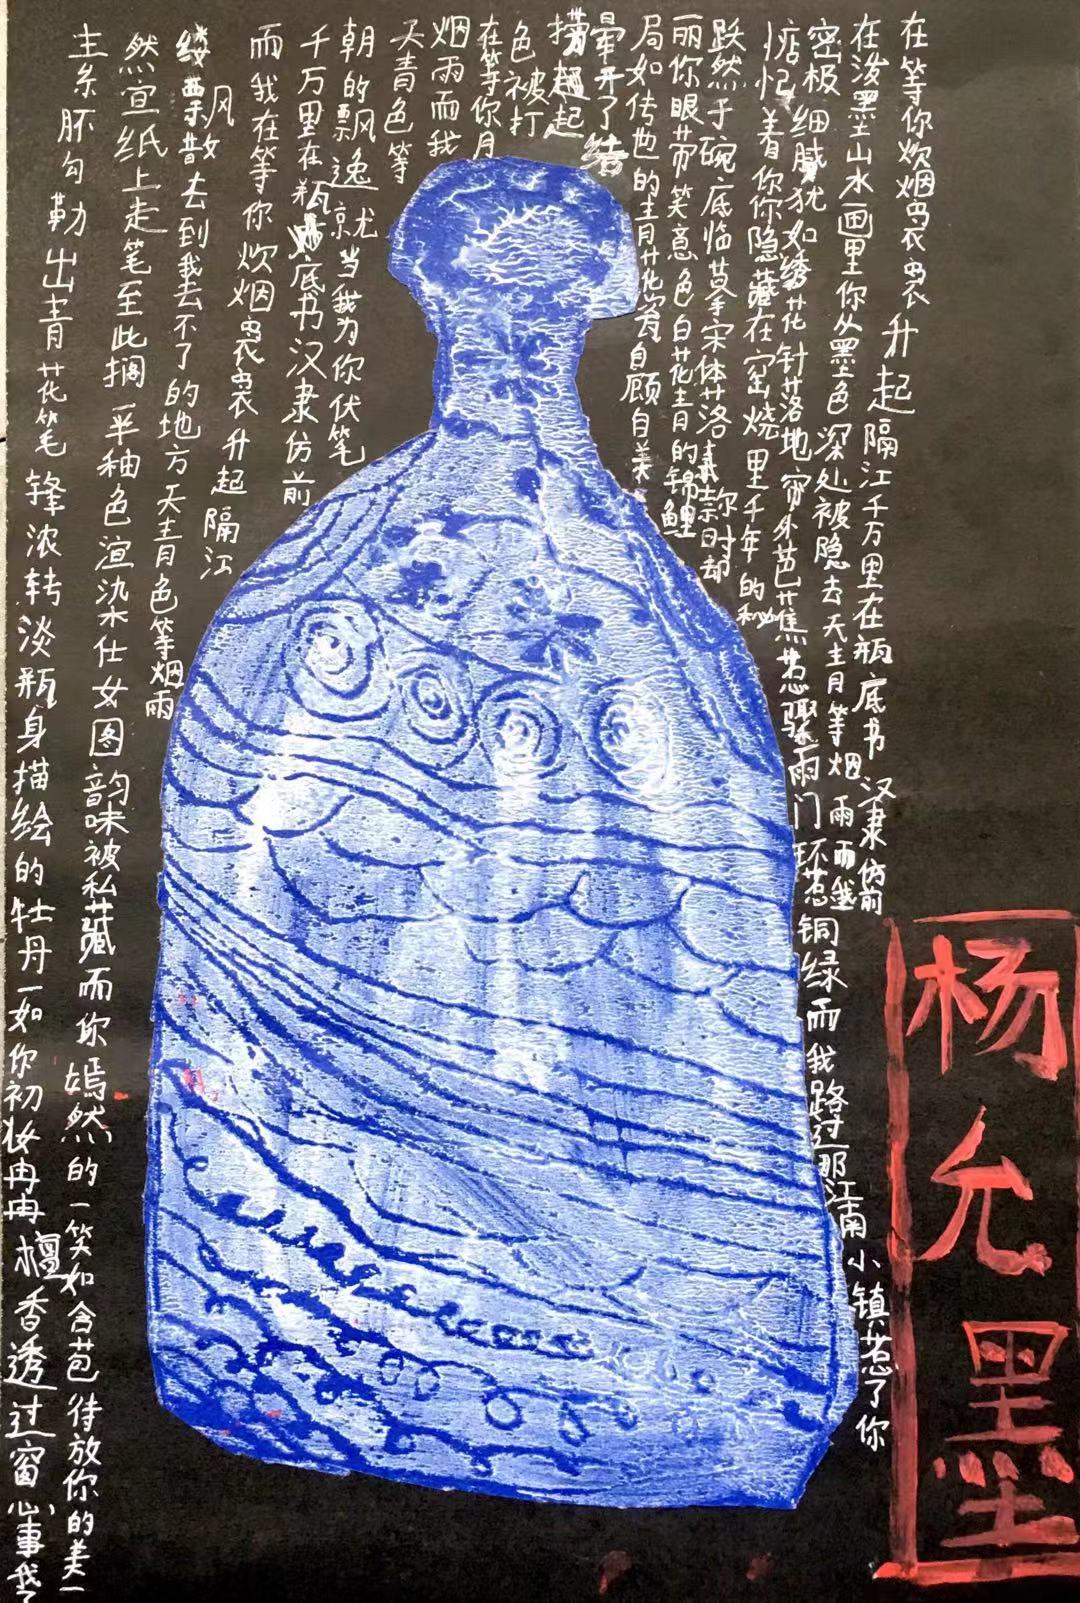 素胚勾勒出青花笔锋浓转淡瓶身描绘的牡丹一如你初妆冉冉檀香透过窗心事我
然宣纸上走笔至此搁一平釉色渲染仕女图韵味被私藏而你嫣然的一笑如含苞待放你的美一
缕飘散去到我去不了的地方天青色等烟雨
而我在等你炊烟袅袅升起隔江
千万里在瓶底书汉隶仿前
朝的飘逸就当我为你伏笔
天青色等
烟雨而我
在等你月
色被打
捞起
晕开了结
局如传世的青花瓷自顾自美
丽你眼带笑意色白花青的锦鲤
跃然于碗底临摹宋体落款时却
惦记着你你隐藏在窑烧里千年的秘
密极细腻犹如绣花针落地窗外芭蕉惹骤雨门环惹铜绿而我路过那江南小镇惹了你
在泼墨山水画里你从墨色深处被隐去天青等烟雨而我
在等你炊烟袅袅升起隔江千万里在瓶底书汉隶仿前
杨允墨